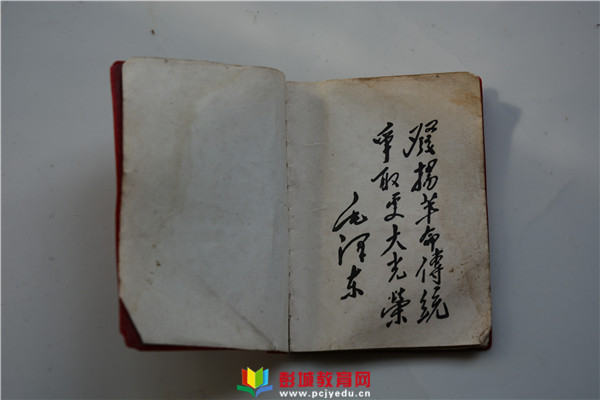 發揚革命傳統
爭取更大光榮
毛澤东
彭城教育网
www.pcjyedu.cn